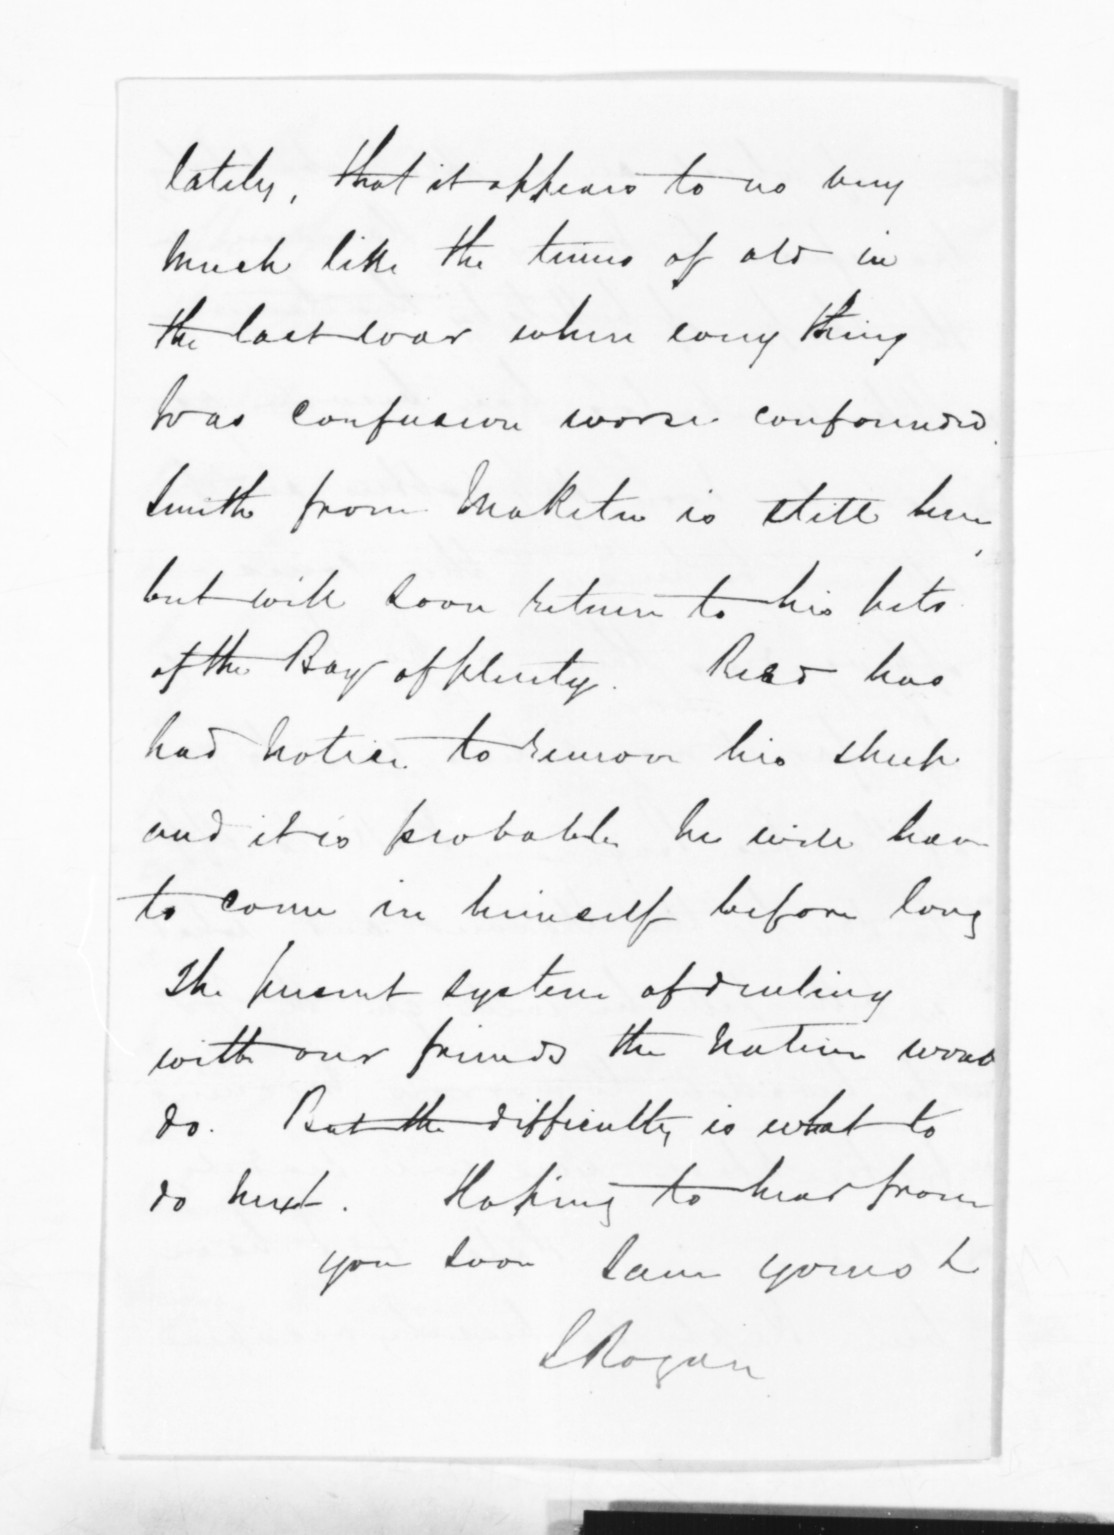 lately, that it appears to us very
much like the times of old in
the last war when every thing
was confusion worse confounded.
Smith from Maketu is still here,
but will soon return to his pets
of the Bay of plenty. Read has
had notice to remove his sheep
and it is probable he will have
to come in himself before long
The present system of dealing
with our friends the natives wont
do. But the difficulty is what to
do next. Hoping to hear from
you soon I am yours
S Rogan